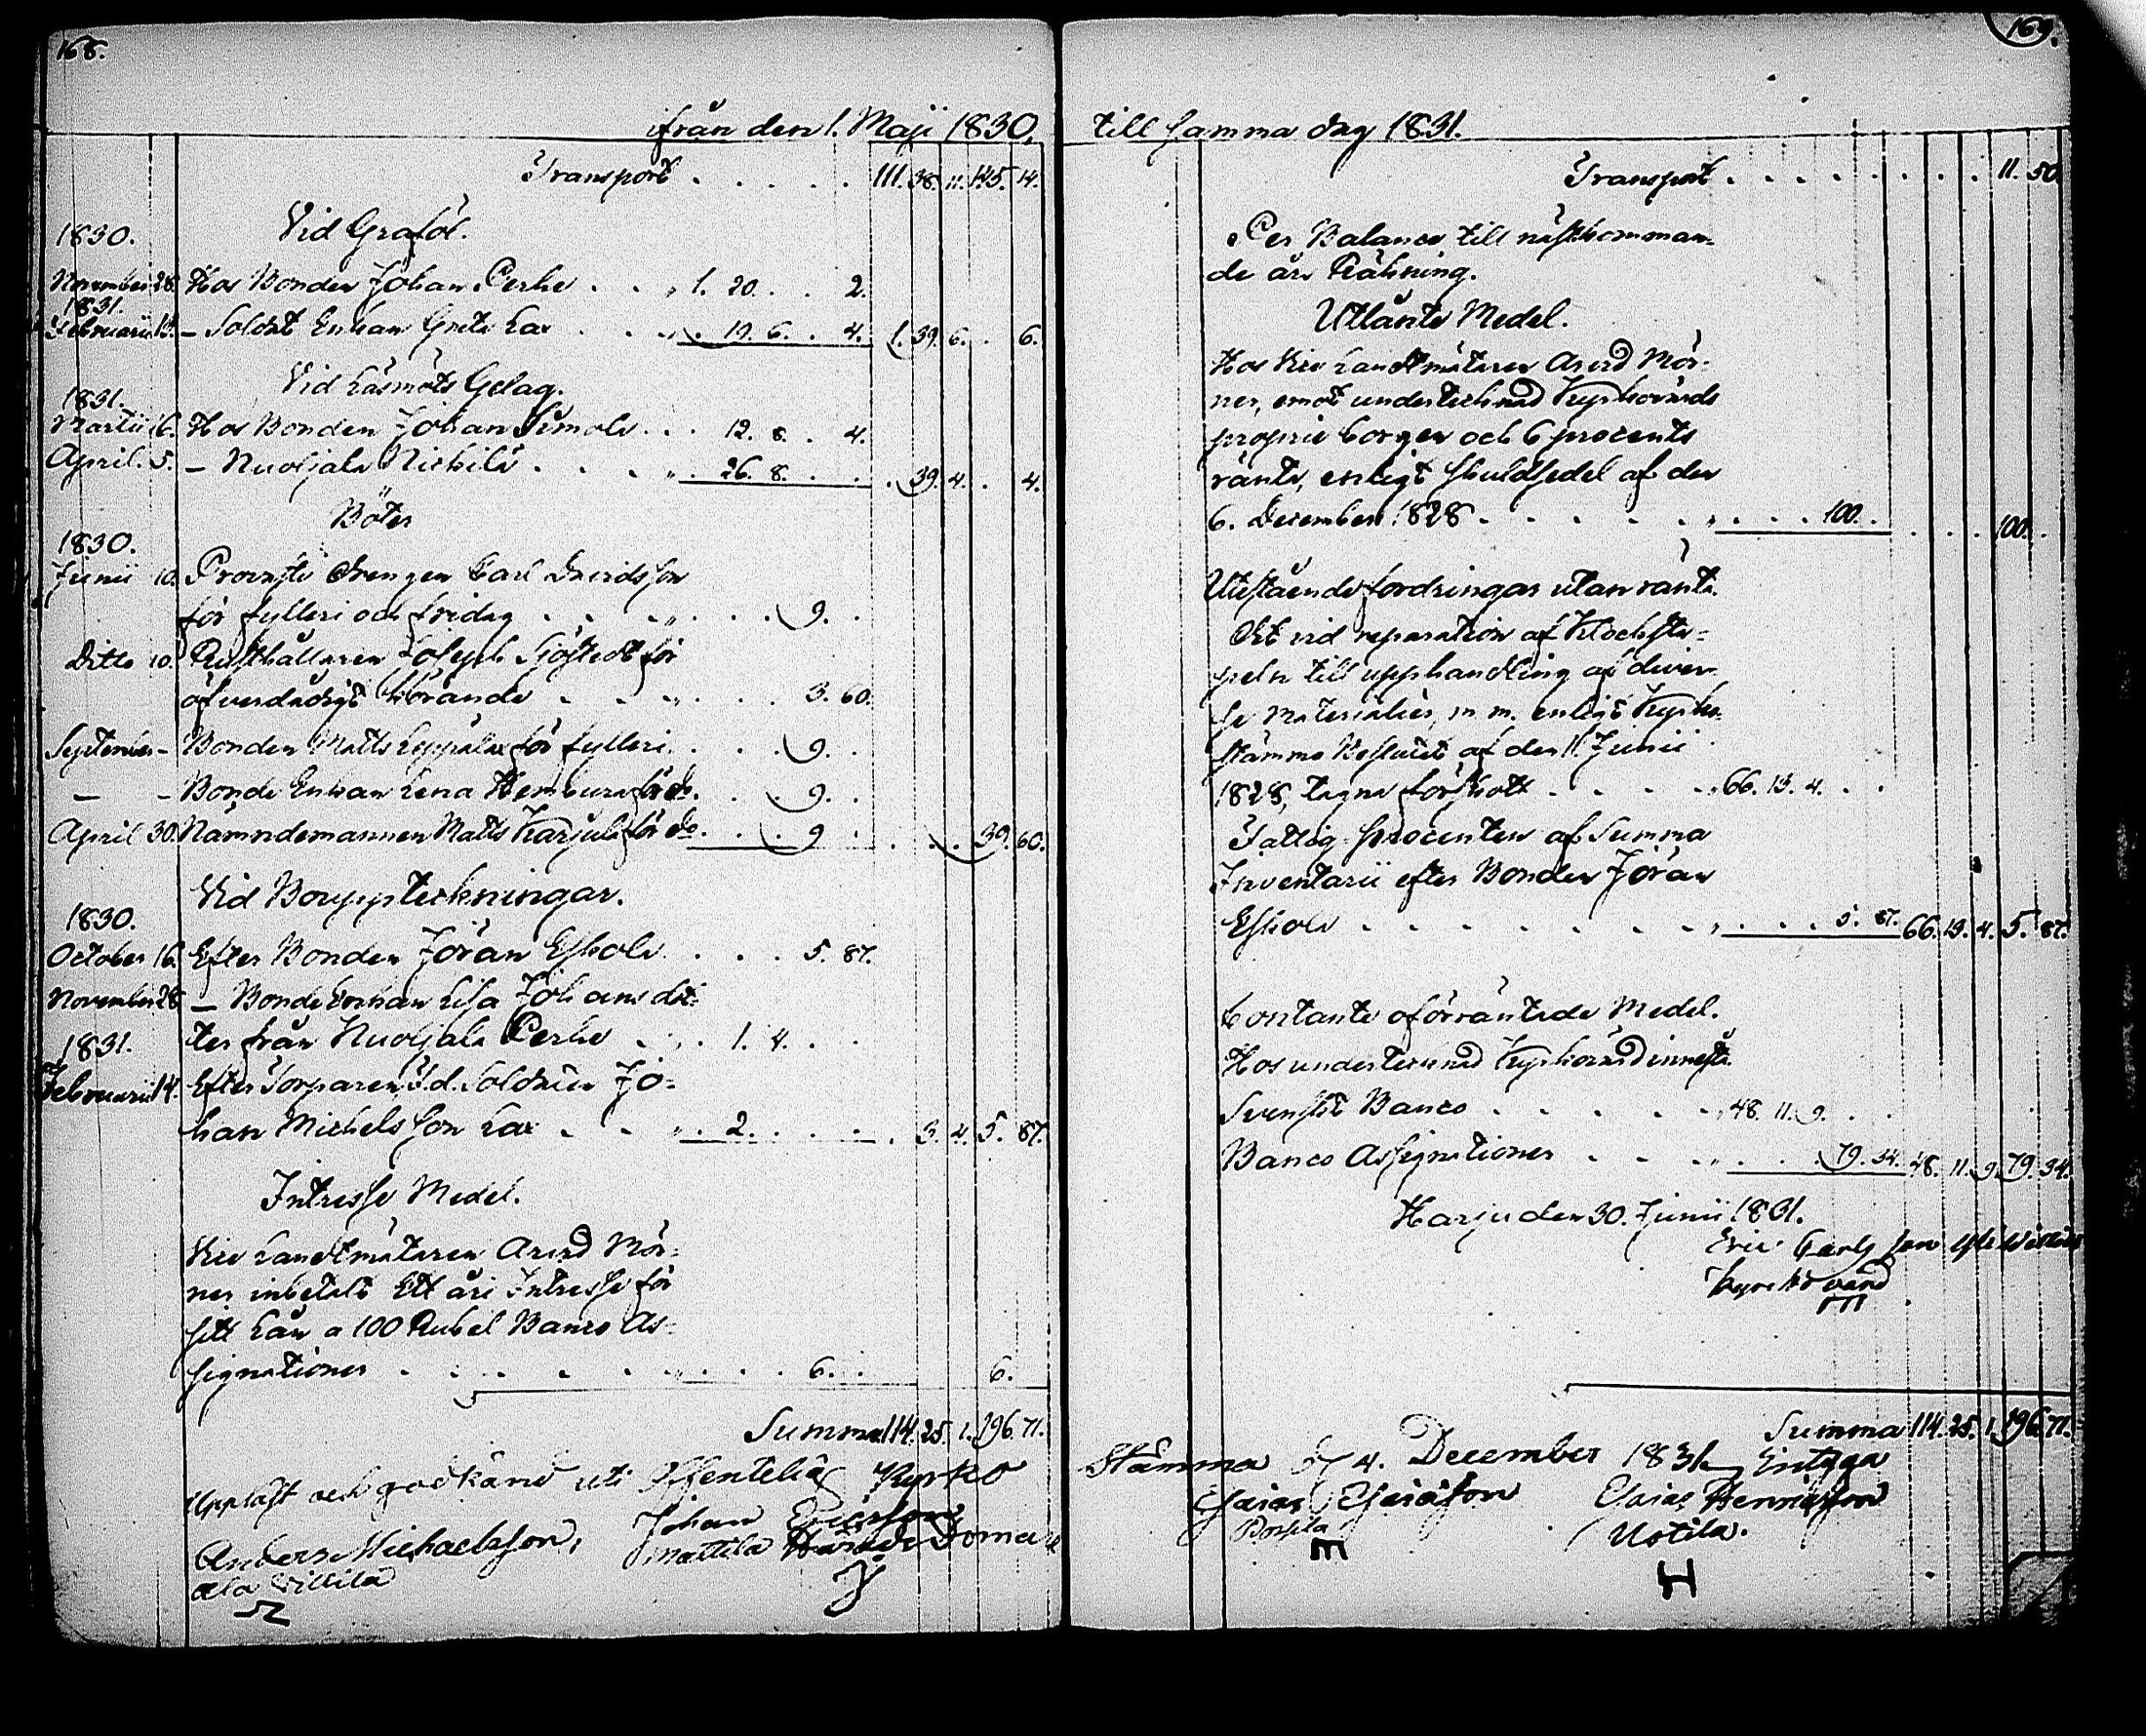 168.
ifrån den 1. Maji 1830,
Transport . . . . . 111. 38. 11. 145. 14.
1830. Vid Graföl.
November 28. Hos Bonden Johan Perhe . . „ 1. 20. . 2.
1831.
Februarii 14. – Soldat Enkan Greta Lax . . . „ . 19. 6. . 4. 1. 39. 6. . 6.
Vid Läsmöts Gelag.
1831.
Martii 16. Hos Bonden Johan Simola . . . 12. 8. . 4.
April. 5. – Nuoljala Nichilä . . . . „ . 26. 8. . . . 39. 4. . 4.
Böter
1830.
Junii 10. Drengen Carl Davidsson
för fylleri och fridag . . . „ . . . 9. .
Ditto 10. Rusthållaren Joseph Sjöstedt för
öfverdådigt Körande . . . „ . . . 3. 60.
September – Bonden Matts Leppälax för fylleri . . . . 9. .
– – Bonde Enkan Lena Hembura för do. . . 9. .
April 30. Nämndemannen Matts Karjula för do. . . 9 . . . . 39. 60.
Vid Bouppteckningar.
1830.
October 16. Efter Bonden Jöran Eskola . . . . 5. 87.
November 28. – Bonde Enkan Lisa Johans dot-
ter från Nuoljala Perhe . „ . 1. 4. . .
1831.
Februarii 14. Efter Torparen f.d. Soldaten Jo-
han Michelsson Lax . . „ . 2. . . . . 3. 4. 5. 87.
Intresse Medel.
Vice Landtmätaren Arvid Mör-
ner inbetalt Ett års Intresse för
sitt Lån a 100 Rubel Banco As-
signationer . . . . . . „ . . . 6. . 6.
Summa 114. 25. 1. 196. 71.
Uppläst och godkänd uti Offentelig Kyrko
Anders Michaelsson, Johan Ericsson
ala Villila Mattila
169.
till samma dag 1831.
Transport . . . . . . . . . 11. 50.
Per Balance till nästkomman-
de års Räkning.
Utlånte Medel.
Hos Vice Landtmätaren Arvid Mör-
ner, emot undertecknad Kyrkovärds
proprie borgen och 6 procents
ränta, enligt skuldsedel af den
6. December 1828 . . . . . „ . . . 100. . . . . 100. .
Utestående fordringar utan ränta.
Et vid reparation af Klocksta-
peln till upphandling af diver-
se Materialier, m.m. enligt Kyrko-
stämmo Beslutet af den 11. Junii
1828, tagne förskott . . . . „ 66. 13. 4. . .
Fattig procenten af Summa
Inventarii efter Bonden Jöran
Eskola . . . . . . . „ . . . 5. 87. 66. 13. 4. 5. 87.
Contante oförräntade Medel.
Hos undertecknad Kyrkovärd innestå.
Svenskt Banco . . . . . „ 48. 11. 9. . .
Banco Assignationer . . . „ . . . 79. 34. 48. 11. 9. 79. 34.
Harju den 30. Junii 1831.
Eric Carlsson
Kyrckovärd
Summa 114. 25. 1. 196. 71.
Stämma d 4. December 1831 Intyga
Esaias Esaiasson Esaias Henricsson
Uotila.
H